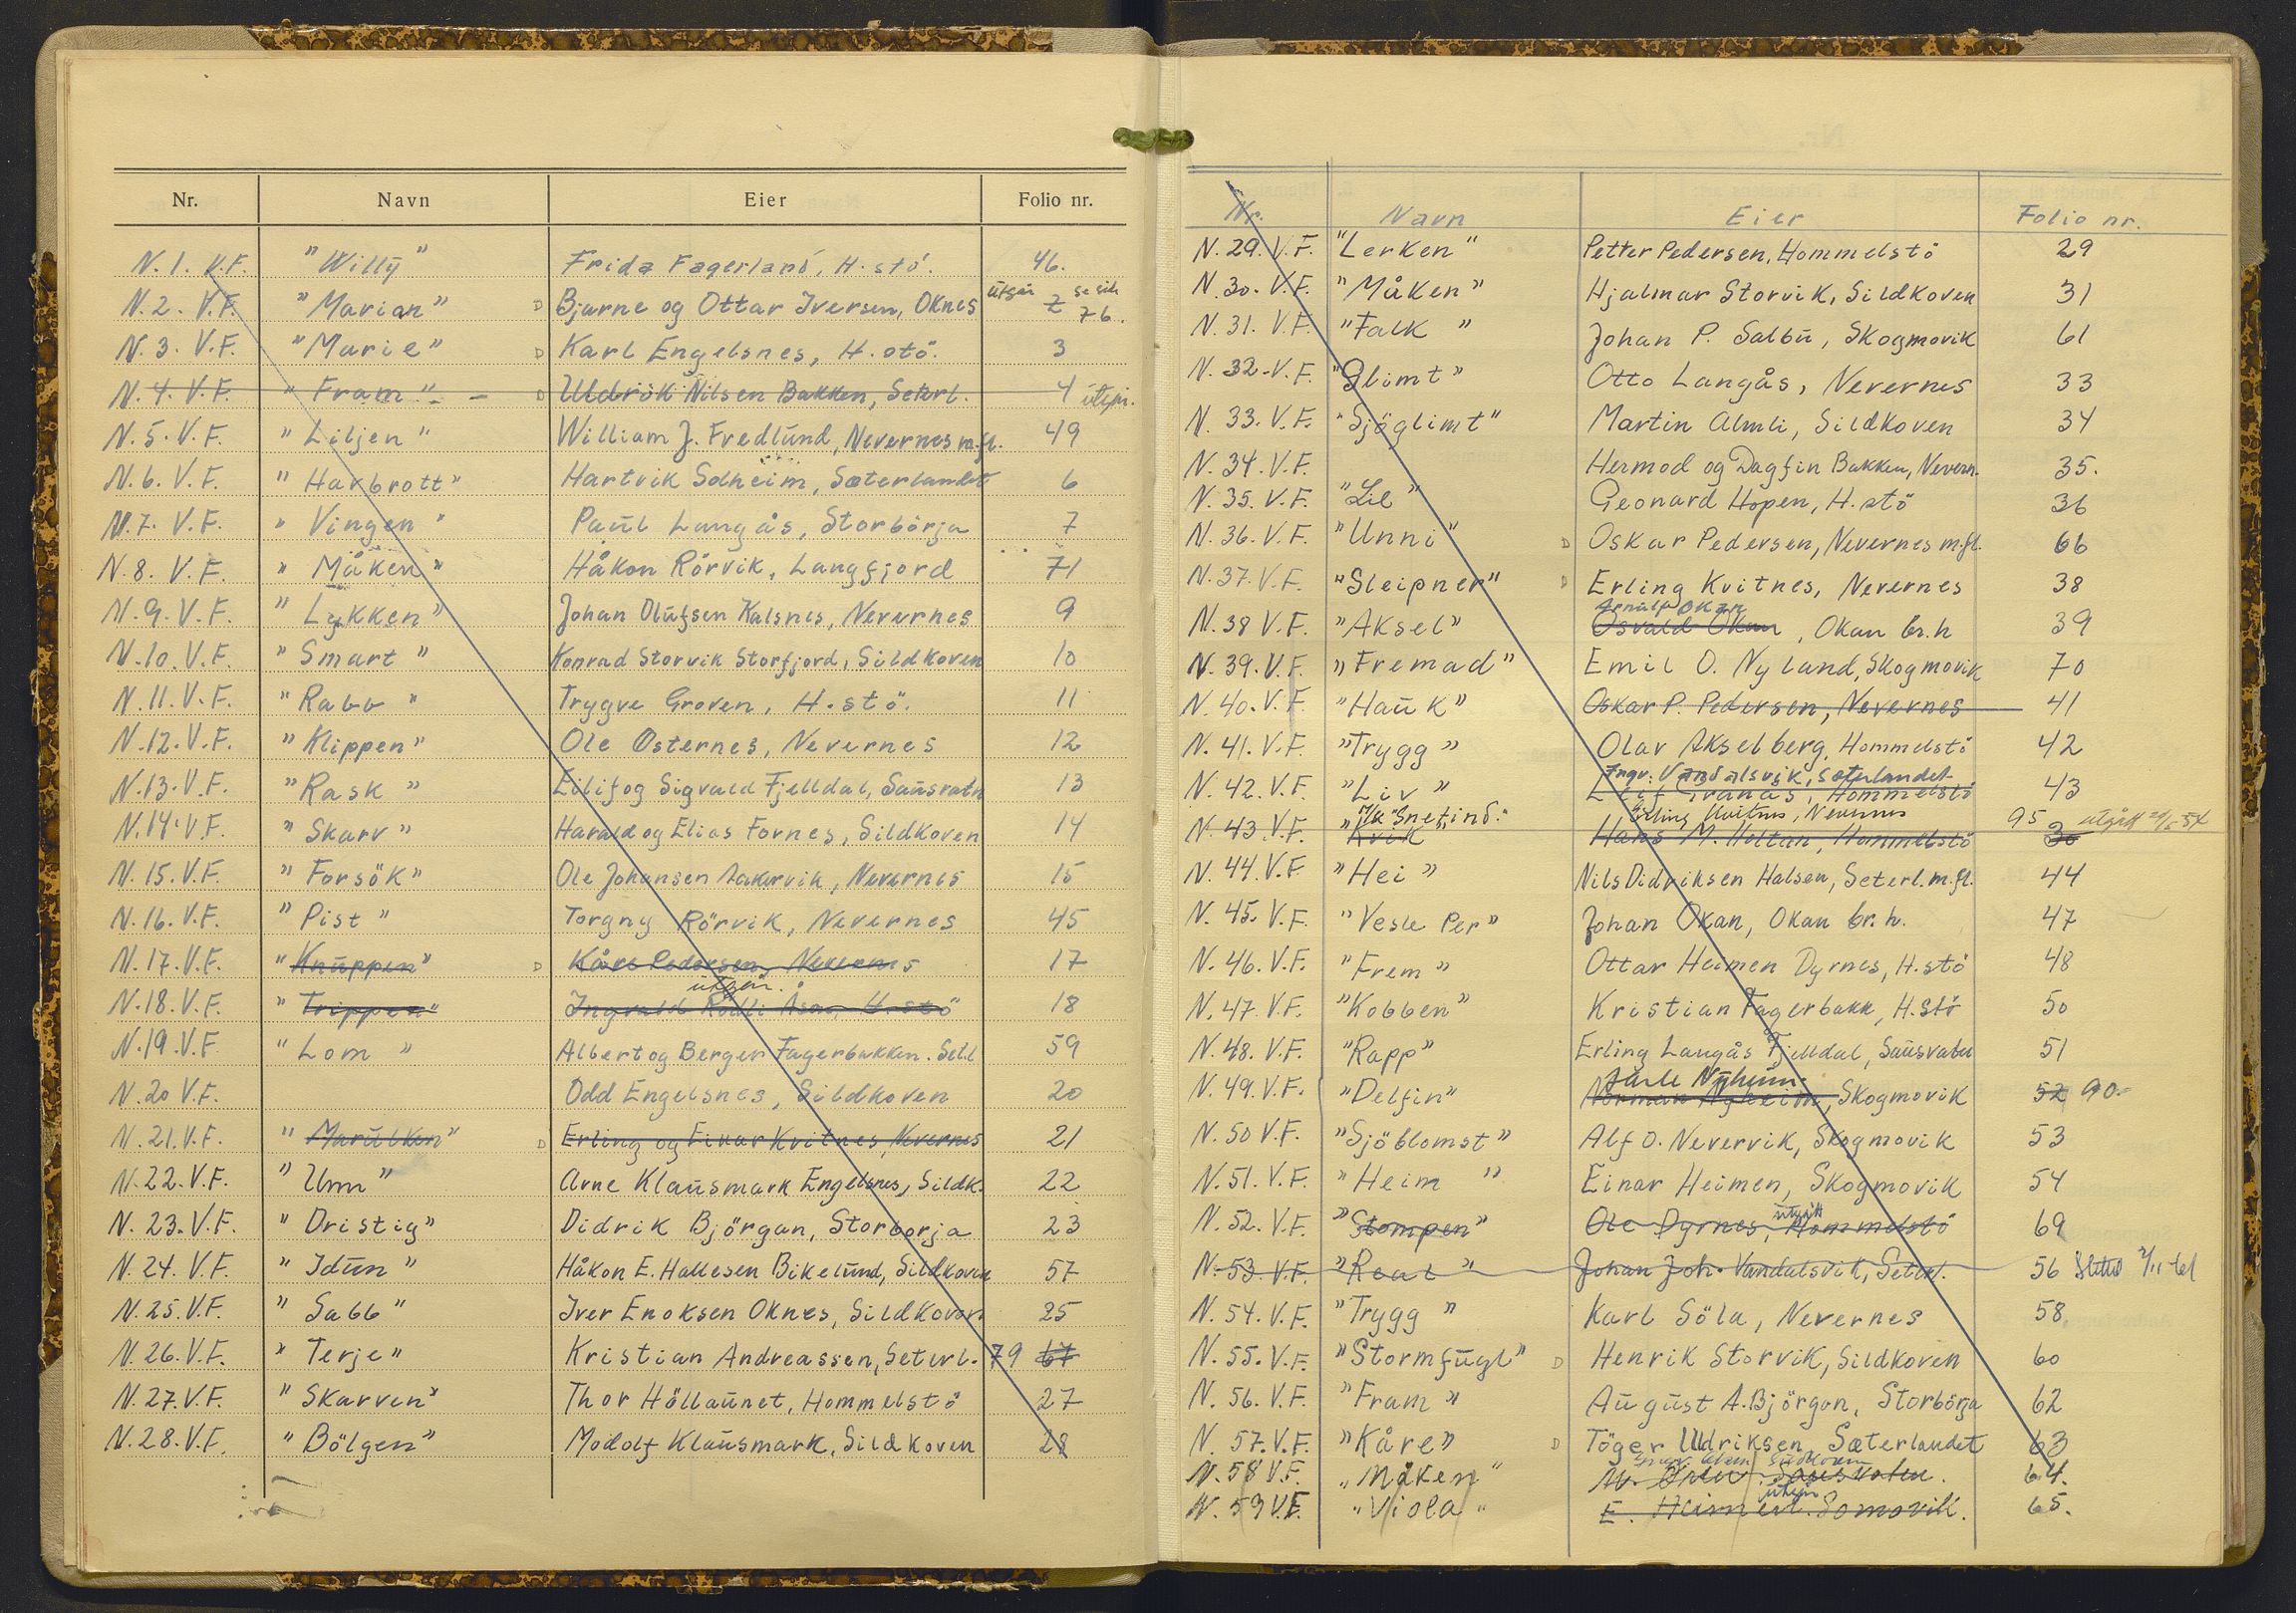 Nr. Navn Eier Folio nr.
N. 1. V.F. "Willy" Frida Fagerland, H. stö. 46.
utgår se side
N. 2. V.F. "Marian" D Bjarne og Ottar Iversen, Oknes 2 76.
N. 3. V.F. "Marie" D Karl Engelsnes, H. stö. 3
N. 4. V.F. "Fram" D Uldrik Nilsen Bakken, Seterl. 4 utgår.
N. 5. V.F. "Liljen" William J. Fredlund, Nevernes m.fl. 49
N. 6. V.F. "Havbrott" Hartvik Solheim, Sæterlandet 6
N. 7. V.F. "Vingen" Paul Langås, Storbörja 7
N. 8. V.F. "Måken" Håkon Rörvik, Langfjord 71
N. 9. V.F. "Lykken" Johan Olufsen Kalsnes, Nevernes 9
N. 10. V.F. "Smart" Konrad Storvik Storfjord, Sildkoven 10
N. 11. V.F. "Rabb" Trygve Groven, H. stö. 11
N. 12. V.F. "Klippen" Ole Osternes, Nevernes 12
N. 13. V.F. "Rask" Eilif og Sigvald Fjelldal, Sausvatn 13
N. 14. V.F. "Skarv" Harald og Elias Fornes, Sildkoven 14
N. 15. V.F. "Forsök" Ole Johansen Aakervik, Nevernes 15
N. 16. V.F. "Pist" Torgny Rörvik, Nevernes 45
N. 17. V.F. "Knuppen" D Kåre Pedersen, Nevernes 17
utgår.
N. 18. V.F. "Trippen" Ingvald Åsen H. stö 18
N. 19. V.F. "Lom" Albert og Berger Fagerbakken. Setl 59
N. 20 V.F. Odd Engelsnes, Sildkoven 20
N. 21. V.F. "Marulken" D Erling og Einar Kvitnes, Nevernes 21
N. 22. V.F. "Unn" Arne Klausmark Engelsnes, Sildk. 22
N. 23. V.F. "Dristig" Didrik Björgan, Storborja 23
N. 24. V.F. "Idun" Håkon E. Hallesen Bikelund, Sildkoven 57
N. 25. V.F. "Sabb" Iver Enoksen Oknes, Sildkoven 25
N. 26. V.F. "Terje" Kristian Andreassen, Seterl. 79 67
N. 27. V.F. "Skarven" Thor Höllaunet, Hommelstö 27
N. 28. V.F. "Bölgen" Modolf Klausmark, Sildkoven 28
Nr. Navn Eier Folio nr.
N. 29. V.F. "Lerken" Petter Pedersen, Hommelstö 29
N. 30. V.F. "Måken" Hjalmar Storvik, Sildkoven 31
N. 31. V.F. "Falk" Johan P. Salbu, Skogmovik 61
N. 32. V.F. "Glimt" Otto Langås, Nevernes 33
N. 33. V.F. "Sjöglimt" Martin Almli, Sildkoven 34
N. 34. V.F. Hermod og Dagfin Bakken, Nevern. 35.
N. 35. V.F. "Lil" Geonard Hopen, H. stö 36
N. 36. V.F. "Unni" D Oskar Pedersen, Nevernes m.fl. 66
N. 37. V.F. "Sleipner" D Erling Kvitnes, Nevernes 38
Arnulf Okan
N. 38 V.F. "Aksel" Osvald Okan, Okan br.h 39
N. 39. V.F. "Fremad" Emil O. Nyland, Skogmovik 70
N. 40. V.F. "Hauk" Oskar P. Pedersen, Nevernes 41
N. 41. V.F. "Trygg" Olav Akselberg, Hommelstö 42
Ingv. Vandalsvik, Sæterlandet
N. 42. V.F. "Liv" Leif Tranås, Hommelstö 43
M/k "Snetind." Erling Kvitnes, Nevernes 95 utgått
N. 43. V.F. "Kvik" Hans M. Holtan, Hommelstö 30
N. 44. V.F. "Hei" Nils Didriksen Halsen, Seterl. m.fl. 44
N. 45. V.F. "Vesle Per" Johan Okan, Okan br.h. 47
N. 46. V.F. "Frem" Ottar Heimen Dyrnes, H. stö 48
N. 47. V.F. "Kobben" Kristian Fagerbakk, H. Stö 50
N. 48. V.F. "Rapp" Erling Langås Fjelldal, Sausvatn 51
Nyheim.
N. 49. V.F. "Delfin" Norman Nyheim, Skogmovik 52 90.
N. 50 V.F. "Sjöblomst" Alf O. Nevervik, Skogmovik 53
N. 51. V.F. "Heim" Einar Heimen, Skogmovik 54
utgått
N. 52. V.F. "Stompen" Ole Dyrnes, Hommelstö 69
N. 53. V.F. "Real" Johan Joh. Vandalsvik, Seterl. 56
N. 54. V.F. "Trygg" Karl Söla, Nevernes 58
N. 55. V.F. "Stormfugl" D Henrik Storvik, Sildkoven 60
N. 56. V.F. "Fram" August A. Björgan, Storbörja 62
N. 57. V.F. "Kåre" D Töger Uldriksen, Sæterlandet 63
Sildkoven
N. 58 V.F. "Måken" Sausvatn. 64.
utgår
N. 59 V.F. "Viola" E. Heimen. Somovik. 65.